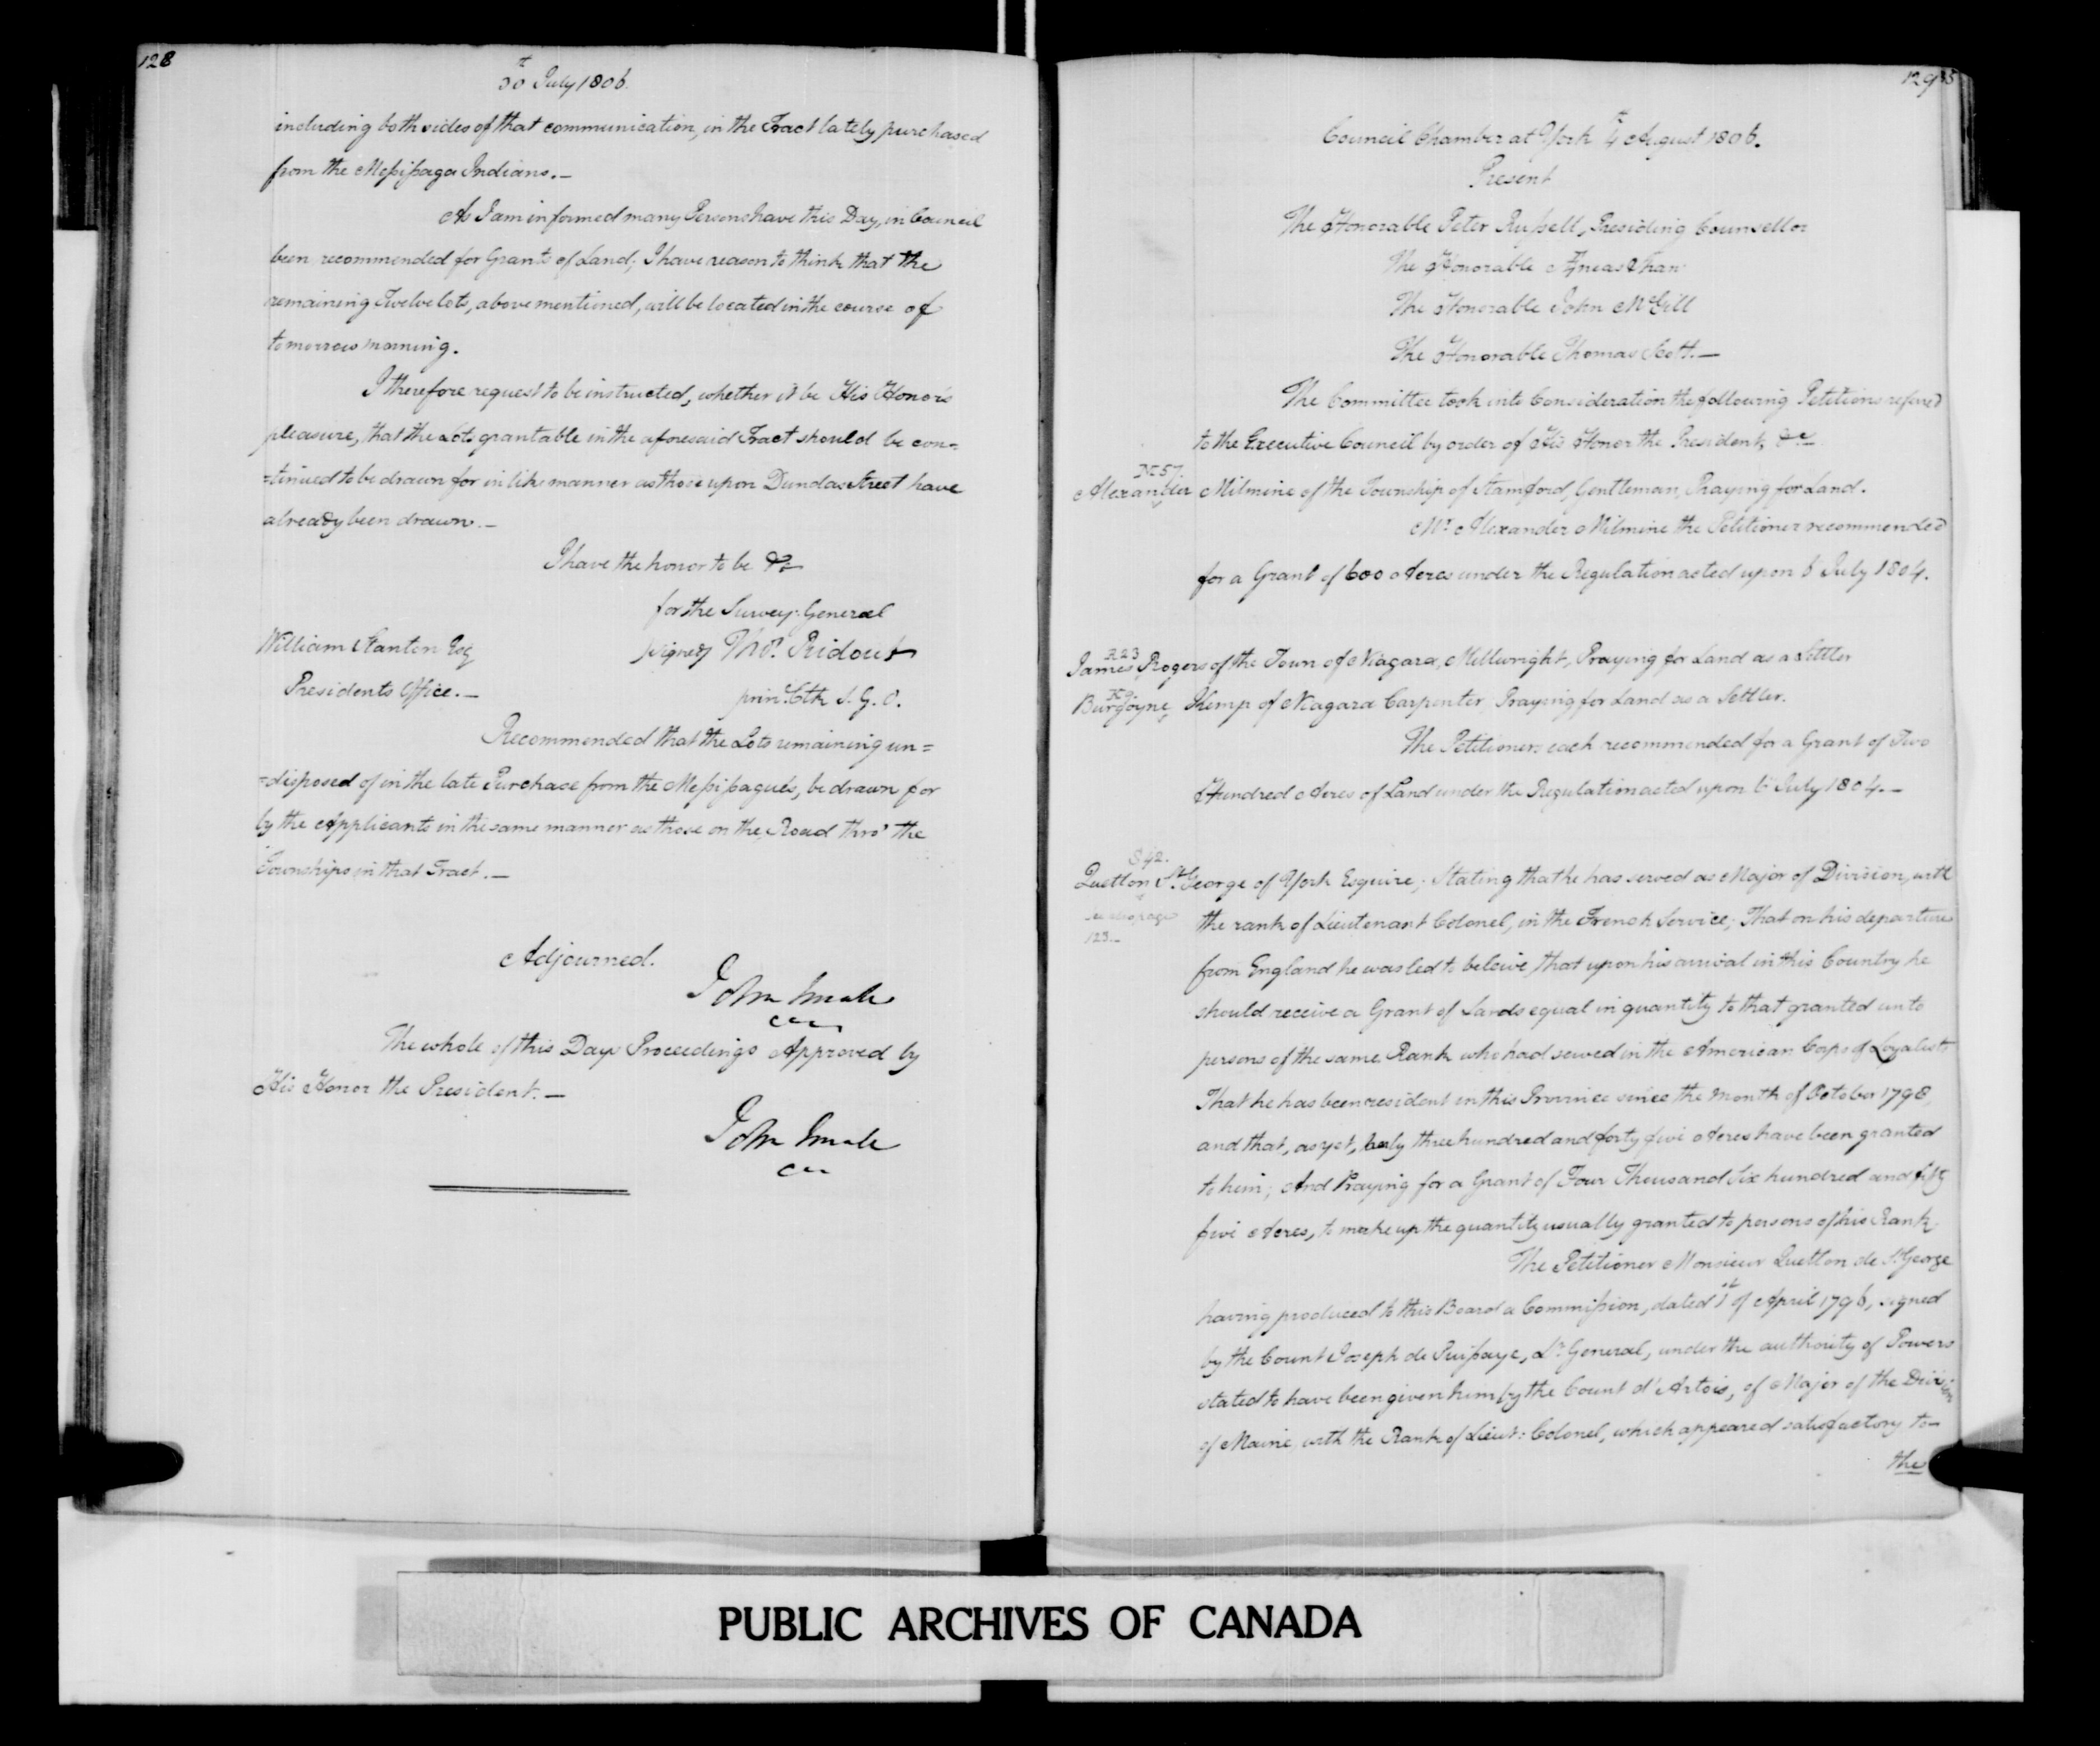 128
30th July 1806.
including both sides of that communication, in the Tract lately purchased
from the Messissaga Indians.—
As I am informed many Persons have this Day, in Council
been recommended for Grants of Land; I have reason to think that the
remaining Twelve lots, above mentioned, will be located in the course of
tomorrow morning.
I therefore request to be instructed, whether it be His Honor's
pleasure, that the Lots grantable in the aforesaid Tract should be con=
=tinued to be drawn for in like manner as those upon Dundas Street have
already been drawn.—
I have the honor to be &c
for the Survey: General
signed Thos. Ridout
William Stanton Esq
Presidents Office.—
prinl. Clk S. G. O.
Recommended that the Lots remaining un=
=disposed of in the late Purchase from the Messissagues, be drawn for
by the Applicants in the same manner as those on the Road thro' the
Townships in that Tract.—
Adjourned.
John Small
The whole of this Days Proceedings Approved by
His Honor the President.—
John Small
129
Council Chamber at York 4th August 1806.
Present
The Honorable Peter Russell, Presiding Counsellor
The Honorable Æneas Shaw
The Honorable John McGill
The Honorable Thomas Scott.—
The Committee took into Consideration the following Petitions refered
to the Executive Council by order of His Honor the President, &c
M 57.
Alexander Milmine of the Township of Stamford, Gentleman, Praying for Land.
Mr. Alexander Milmine the Petitioner recommended
for a Grant of 600 Acres under the Regulation acted upon 6 July 1804.
R 23
James Rogers of the Town of Niagara, Millwright, Praying for Land as a Settler
K 9.
Burgoyne Kemp of Niagara Carpenter, Praying for Land as a Settler.
The Petitioners each recommended for a Grant of Two
Hundred Acres of Land under the Regulation acted upon 6 July 1804.—
S 42.
Quetton St. George of York Esquire; Stating that he has served as Major of Division, with
see also page
123.—
the rank of Lieutenant Colonel, in the French Service; That on his departure
from England he was led to beleive, that upon his arrival in this Country he
should receive a Grant of Lands equal in quantity to that granted unto
persons of the same Rank who had served in the American Corps of Loyalists
That he has been resident in this Province since the Month of October 1798,
and that, as yet, only three hundred and forty five Acres have been granted
to him; And Praying for a Grant of Four Thousand Six hundred and fifty
five Acres, to make up the quantity usually granted to persons of his Rank.
The Petitioner Monsieur Quetton de St. George
having produced to this Board a Commission, dated 1st of April 1796, signed
by the Count Joseph de Puissaye, Lt. General, under the authority of Powers
stated to have been given him by the Count d'Artois, of Major of the Division
of Maine, with the Rank of Lieut: Colonel, which appeared satisfactory to—
the
PUBLIC ARCHIVES OF CANADA